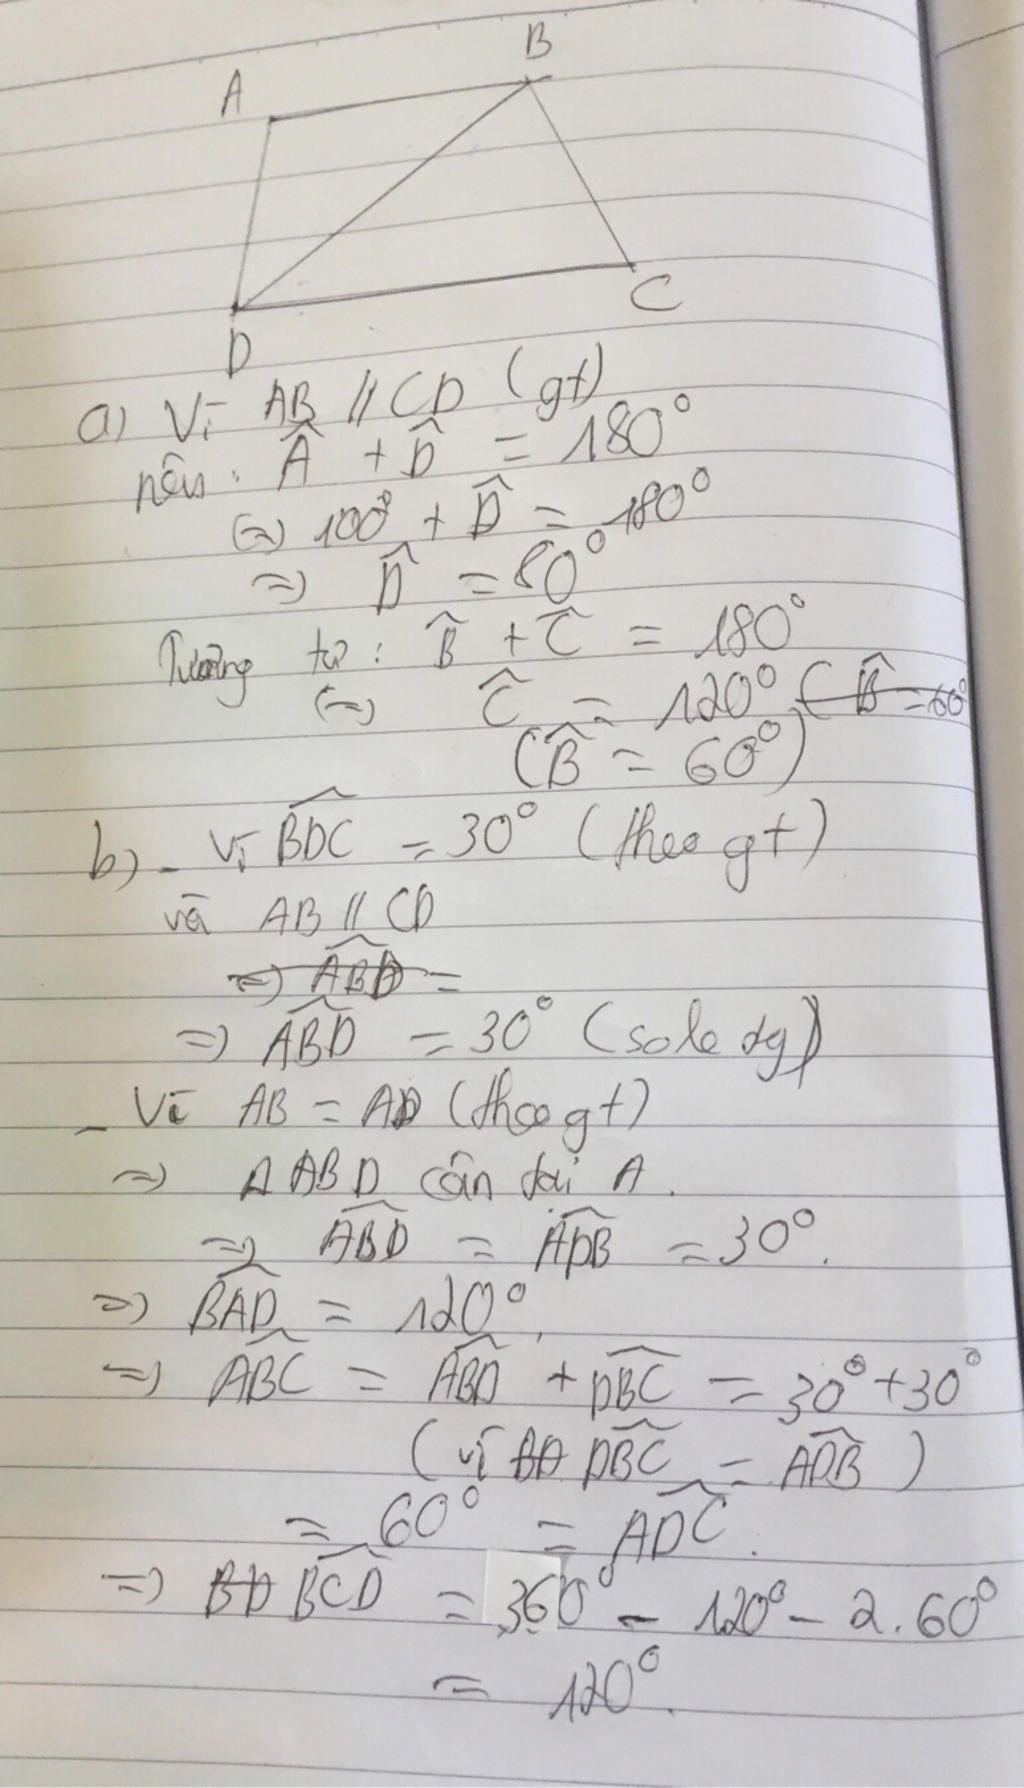 B
A
C
D
a) Vì AB // CD (gt)
nên: Â + D̂ = 180°
(=) 100° + D̂ = 180°
=) D̂ = 80°
Tương tự: B̂ + Ĉ = 180°
(=) Ĉ = 120° ( B̂ = 60°
(B̂ = 60°)
b) - Vì BDC = 30° (theo gt)
và AB // CD
=) ABD =
=) ABD = 30° (sole )
- Vì AB = AD (theo gt)
=) Δ ABD cân tại A.
=) ABD = ADB = 30°.
=) BAD = 120°.
=) ABC = ABD + DBC = 30° + 30°
(vì DBC = ADB)
= 60° = ADC.
=) BD BCD = 360° - 120° - 2.60°
= 120°.